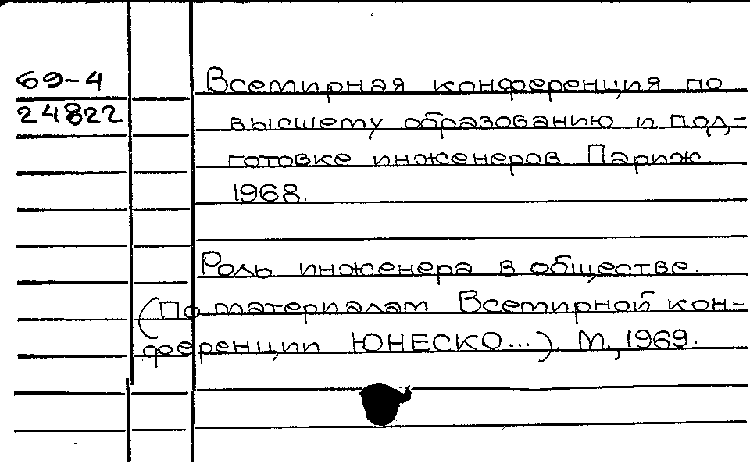 69-4
24822
Всемирная конференция по
высшему образованию и под-
готовке инженеров Париж
1968.
Роль инженера в обществе.
(По материалам Всемирной кон-
ференции ЮНЕСКО...). М., 1969.